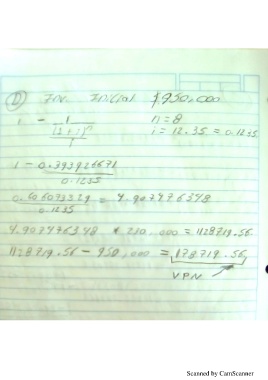 D Inv. Inicial $950,000
1 - 1 n = 8
(1+i)ⁿ i = 12.35 = 0.1235
i
1 - 0.393926671
0.1235
0.606073329 = 4.907476348
0.1235
4.907476348 * 230,000 = 1128719.56
1128719.56 - 950,000 = 178719.56
V.P.N
Scanned by CamScanner